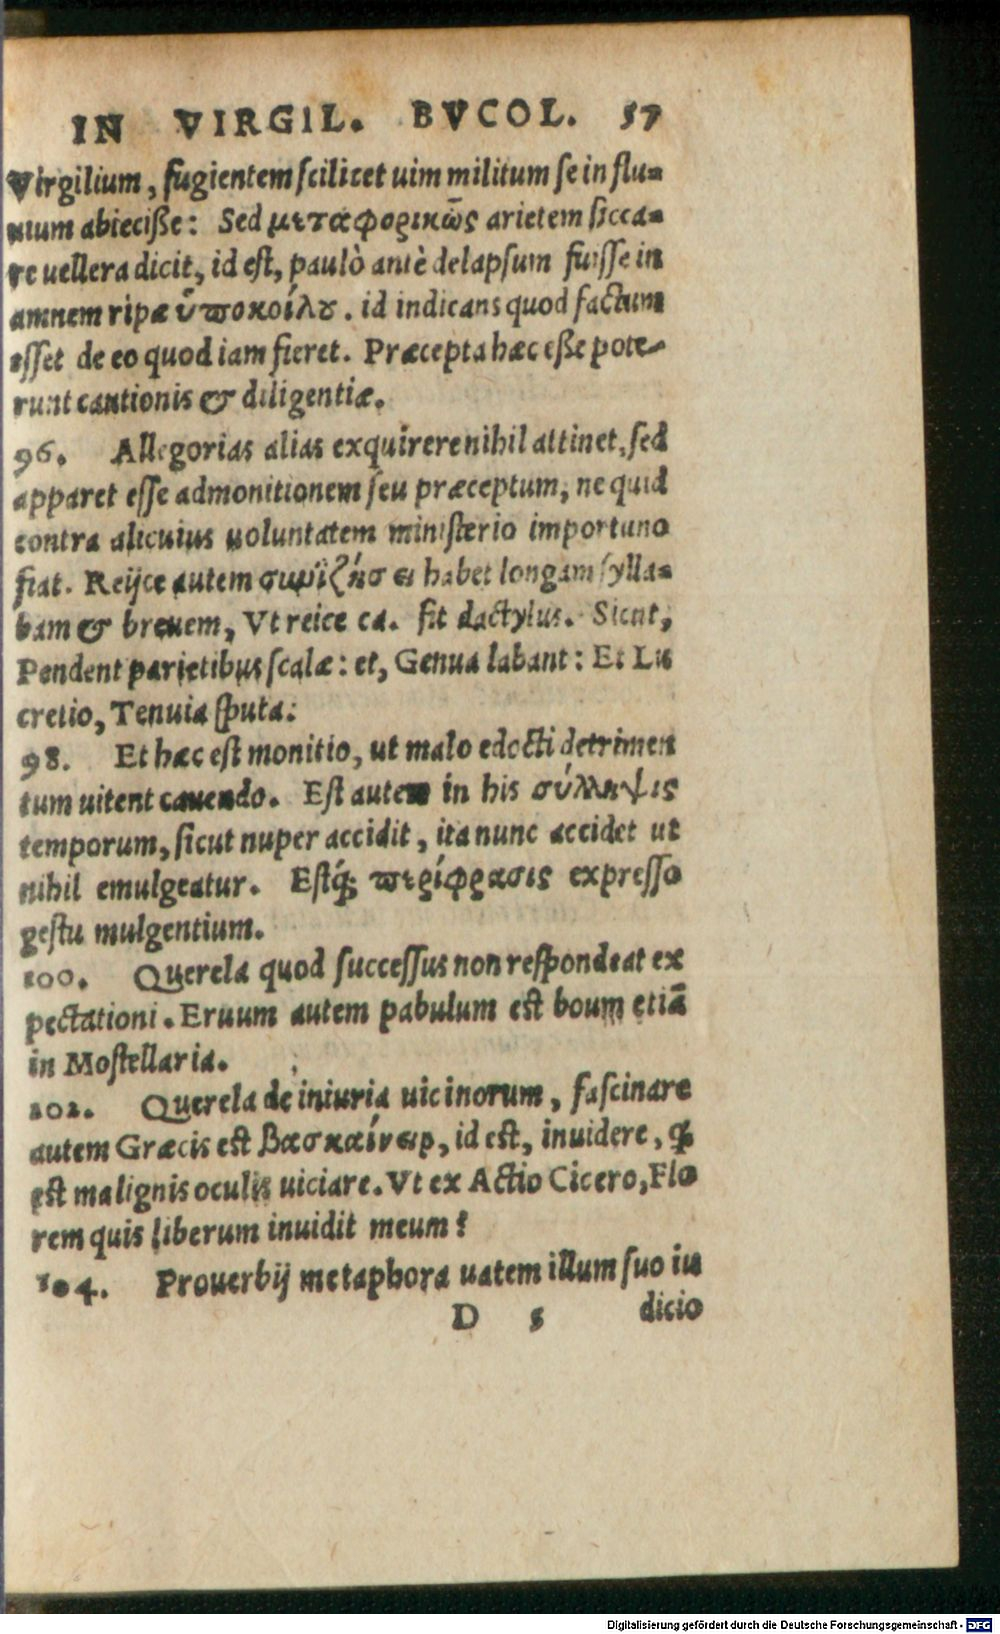 IN VIRGIL. BVCOL. 57
Virgilium, fugientem scilicet uim militum se in flu-
uium abiecisse: Sed μεταφορικῶς arietem sicca-
re uellera dicit, id est, paulò antè delapsum fuisse in
amnem ripæ ὑποκοίλȣ. id indicans quod factum
esset de eo quod iam fieret. Præcepta hæc esse pote-
runt cautionis & diligentiæ.
96. Allegorias alias exquirere nihil attinet, sed
apparet esse admonitionem seu præceptum, ne quid
contra alicuius uoluntatem ministerio importuno
fiat. Reijce autem habet longam sylla-
bam & breuem, Vt reice ca. fit dactylus. Sicut,
Pendent parietibus scalæ: et, Genua labant: Et Lu
cretio, Tenuia sputa:
98. Et hæc est monitio, ut malo edocti detrimen
tum uitent cauendo. Est autem in his σύλληψις
temporum, sicut nuper accidit, ita nunc accidet ut
nihil emulgeatur. Estq́; περίφρασις expresso
gestu mulgentium.
100. Querela quod successus non respondeat ex
pectationi. Eruum autem pabulum est boum etiā
in Mostellaria.
102. Querela de iniuria uicinorum, fascinare
autem Græcis est βασκαίνειν, id est, inuidere, ꝙ
est malignis oculis uiciare. Vt ex Actio Cicero, Flo
rem quis liberum inuidit meum?
104. Prouerbij metaphora uatem illum suo iu
D 5 dicio
Digitalisierung gefördert durch die Deutsche Forschungsgemeinschaft - DFG